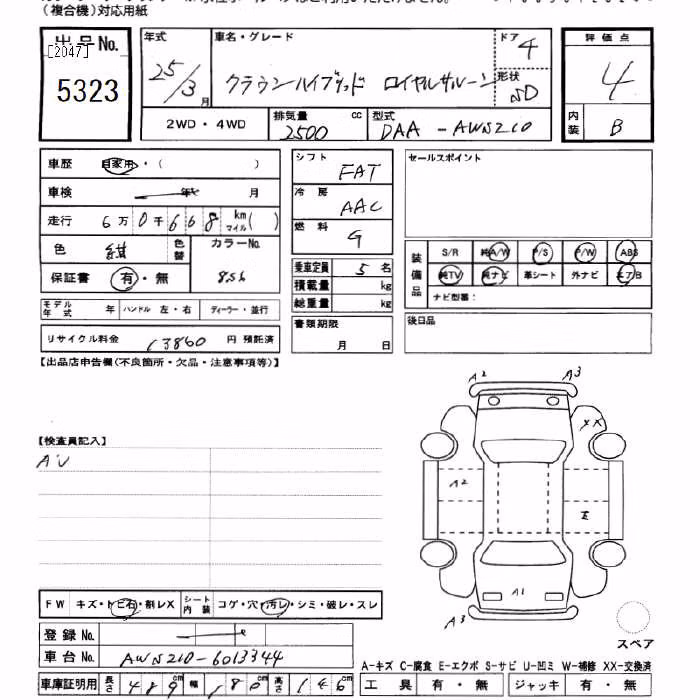 (複合機)対応用紙
出品No. [2047] 5323
年式 25/3月
車名・グレード クラウンハイブリッド ロイヤルサルーン
ドア 4
形状 SD
評価点 4
内装 B
2WD・4WD
排気量 2500 cc
型式 DAA-AWS210
車歴 自家用・( )
車検 年 月
走行 6万0千668km マイル( )
色 紺 色替
カラーNo. 8S6
保証書 有・無
モデル年式 年 ハンドル 左・右 ディーラー・並行
リサイクル料金 13860 円 預託済
シフト FAT
冷房 AAC
燃料 G
乗車定員 5名
積載量 kg
総重量 kg
書類期限 月 日
セールスポイント
装備品 S/R 純A/W P/S P/W ABS
純TV 純ナビ 革シート 外ナビ エアB
ナビ型番:
後日品
【出品店申告欄(不良箇所・欠品・注意事項等)】
【検査員記入】
AU
A2 A3
XX
A2
E
A1
A3
スペア
FW キズ・トビ石・割レX シート内装 コゲ・穴・汚レ・シミ・破レ・スレ
登録No.
車台No. AWS210-6013344
A-キズ C-腐食 E-エクボ S-サビ U-凹ミ W-補修 XX-交換済
車庫証明用 長さ 489cm 幅 180cm 高さ 146cm
工具 有・無 ジャッキ 有・無